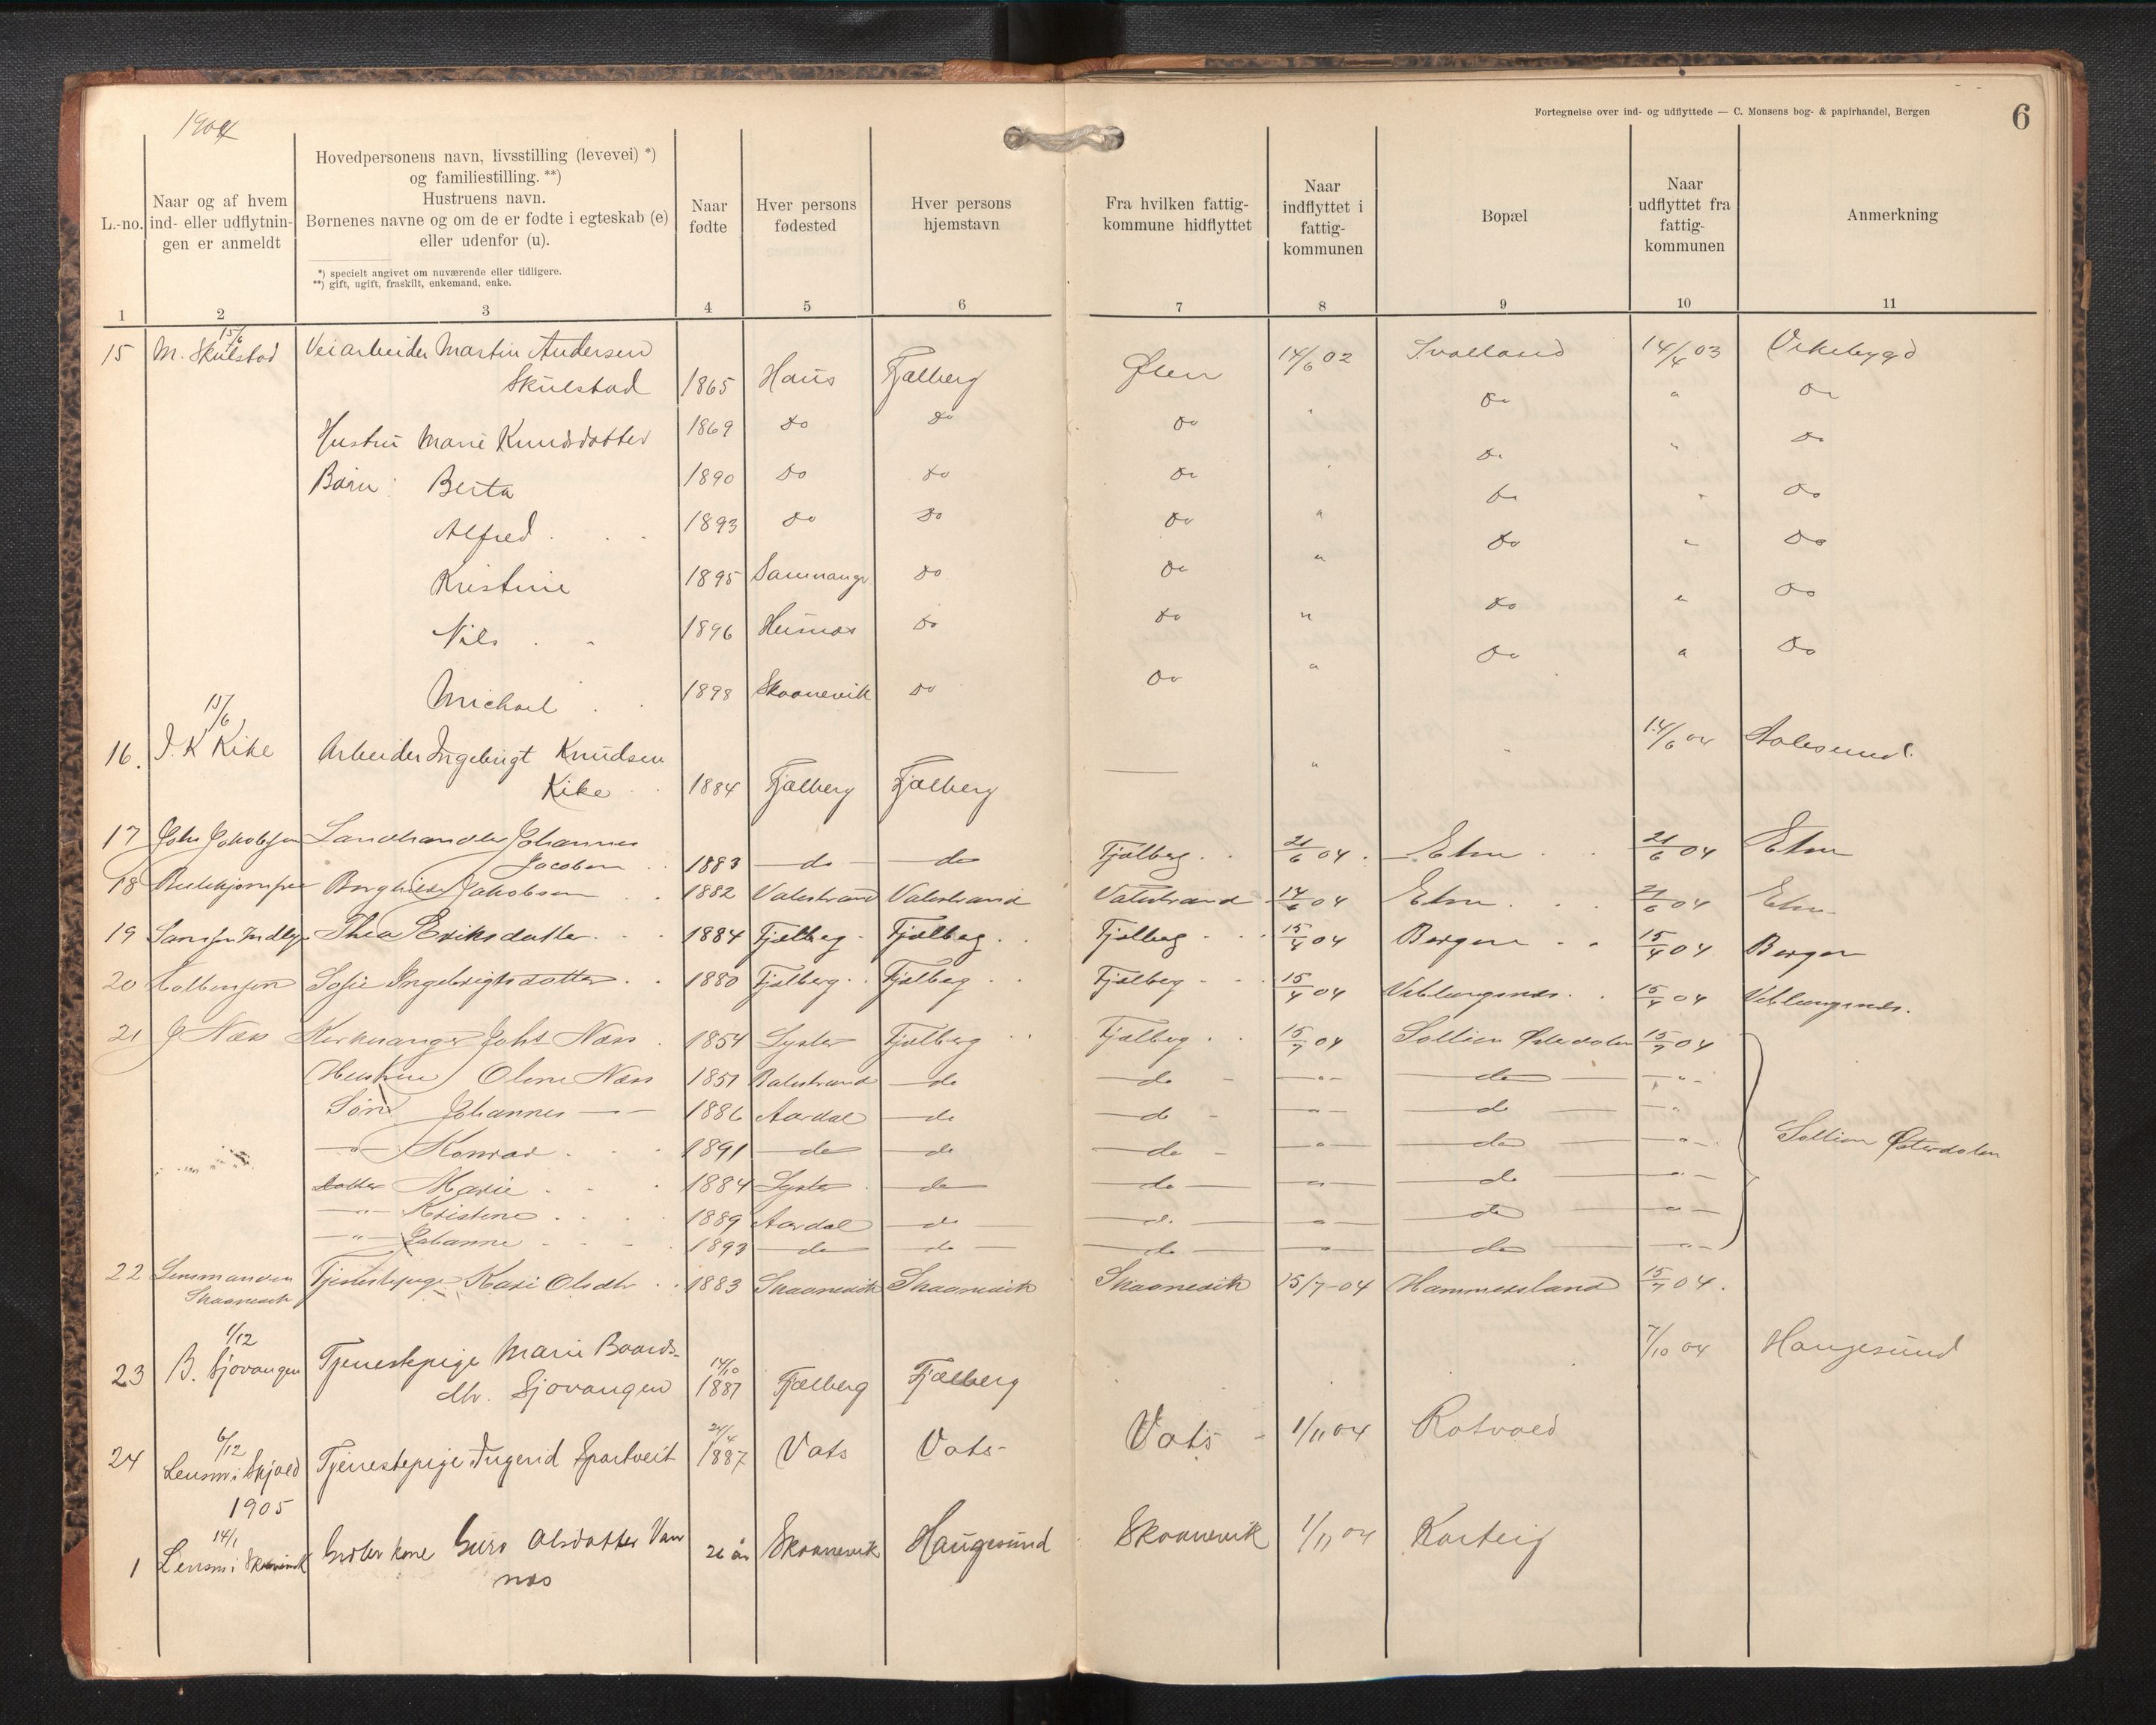 1904
Fortegnelse over ind- og udflyttede — C. Monsens bog- & papirhandel, Bergen
6
L.-no.
Naar og af hvem
ind- eller udflytnin-
gen er anmeldt
Hovedpersonens navn, livsstilling (levevei) *)
og familiestilling. **)
Hustruens navn.
Børnenes navne og om de er fødte i egteskab (e)
eller udenfor (u).
*) specielt angivet om nuværende eller tidligere.
**) gift, ugift, fraskilt, enkemand, enke.
Naar
fødte
Hver persons
fødested
Hver persons
hjemstavn
Fra hvilken fattig-
kommune hidflyttet
Naar
indflyttet i
fattig-
kommunen
Bopæl
Naar
udflyttet fra
fattig-
kommunen
Anmerkning
1 2 3 4 5 6 7 8 9 10 11
15/6
15 M. Skulstad Veiarbeider Martin Andersen
Skulstad 1865 Haus Fjælberg Ølen 14/6 02 Svolland 14/4 03 Vikebygd
Hustru Marie Knudsdatter 1869 do do do " do " do
Børn: Berta 1890 do do do " do " do
Alfred 1893 do do do " do " do
Kristine 1895 Samnanger do do " do " do
Nils 1896 Husnæs do do " do " do
Michael 1898 Skaanevik do do " do " do
15/6
16. I. K Kike Arbeider Ingebrigt Knudsen 14/6 04 Aalesund.
Kike 1884 Fjælberg Fjælberg — "
17 Johs Jakobsen Landhandler Johannes
Jacobsen 1883 do do Fjælberg 21/6 04 Etne 21/6 04 Etne
18 Borghild Jakobsen 1882 Valestrand Valestrand Valestrand 14/6 04 Etne 21/6 04 Etne
19 Thea Eriksdatter 1884 Fjælberg Fjælberg Fjælberg 15/4 04 Bergen 15/4 04 Bergen
20 Sofie Ingebrigtsdatter 1880 Fjælberg Fjælberg Fjælberg 15/4 04 Veblungsnes 15/4 04 Veblungsnes.
21 J Næss Kirkesanger Johs Næss 1854 Lyster Fjælberg Fjælberg 15/7 04 Sollien Østerdalen 15/7 04
(Hustru) Oline Næss 1851 Balestrand do do " do "
Søn Johannes 1886 Aardal do do " do "
" Konrad 1891 do do do " do " Sollien Østerdalen
datter Marie 1884 Lyster do do " do "
" Kristine 1889 Aardal do do " do "
" Johanne 1893 do do do " do "
22 Lensmanden Tjenestepige Kari Olsdtr 1883 Skaanevik Skaanevik Skaanevik 15/7-04 Hammersland 15/7 04.
Skaanevik
1/12
23 B. Sjovangen Tjenestepige Marie Baards- 14/10 7/10 04 Haugesund
dtr. Sjovangen 1887 Fjælberg Fjælberg
6/12
24 Lensm i Skjold Tjenestepige Ingerid Spartveit 1887 Vats Vats Vats 1/11 04 Rotvold
1905
14/1
1 Lensm i Skaanevik kone Guro Olsdatter Van 26 år Skaanevik Haugesund Skaanevik 1/11 04 Karteig
nes